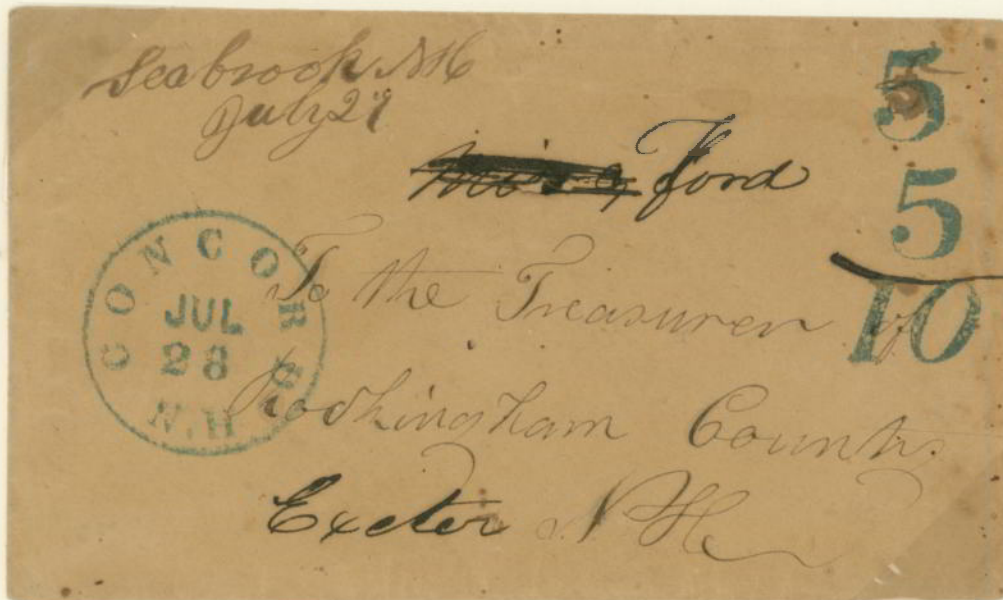 Seabrook NH
July 29
5
5
10
ford
CONCORD
JUL
28
N.H
To the Treasurer of
Rockingham County
Exeter NH